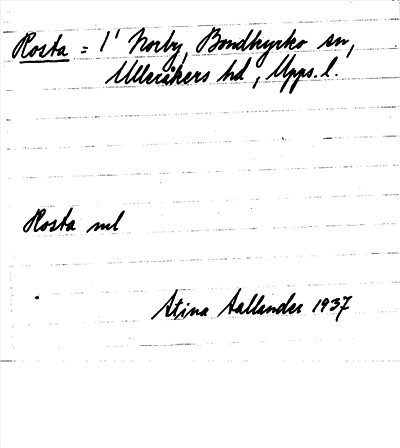 Rosta = 1' Norby, Bondkyrko sn,
Ulleråkers hd, Upps. l.
Rosta ml
Stina Aallander 1937